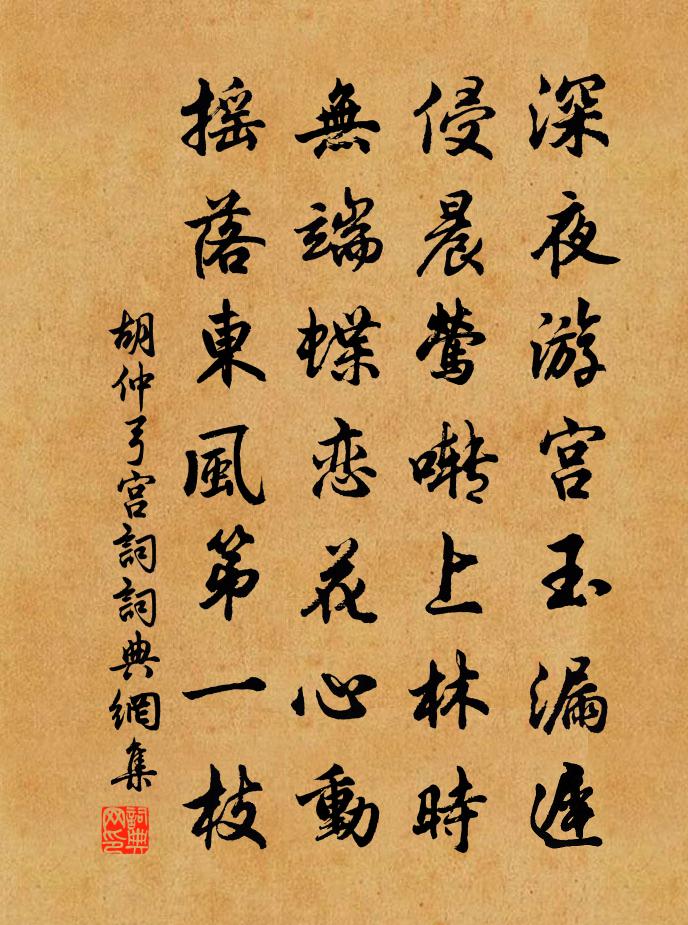 深夜游宫玉漏遲
侵晨鶯囀上林時
無端蝶恋花心動
摇落東風第一枝
胡仲弓宫詞詞典網集
詞典网印